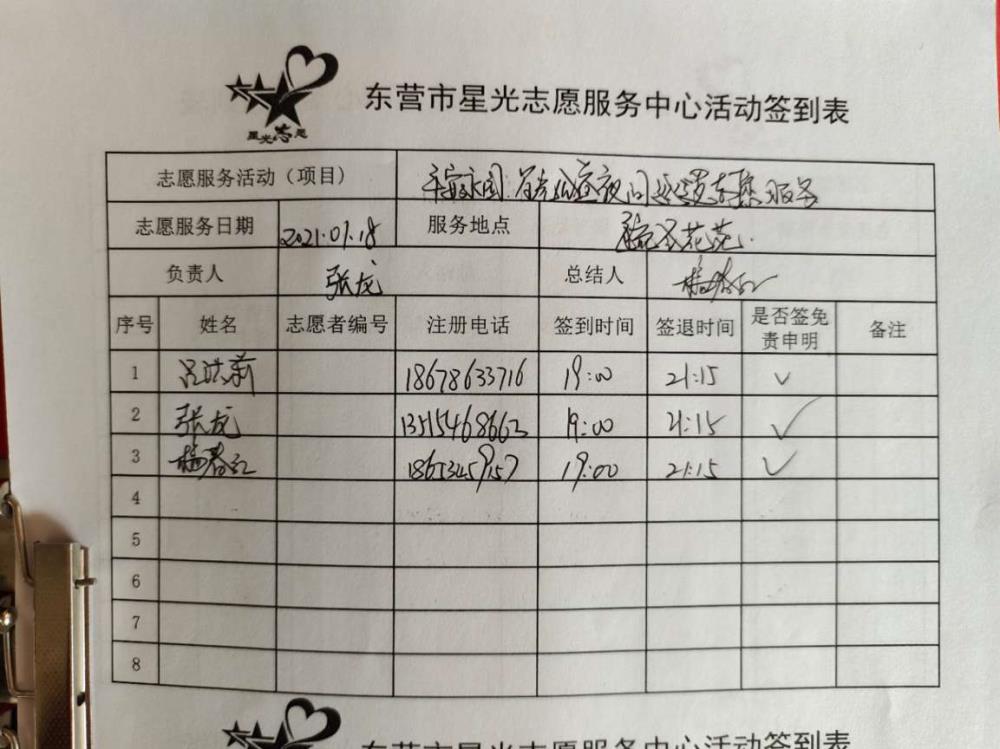 星光志愿
东营市星光志愿服务中心活动签到表
志愿服务活动（项目） 平安家园 夜间巡逻 服务
志愿服务日期 2021.07.18 服务地点 花苑
负责人 张龙 总结人 杨春红
序号 姓名 志愿者编号 注册电话 签到时间 签退时间 是否签免责申明 备注
1 吕洪莉 18678633716 19:00 21:15 ✓
2 张龙 13515468662 19:00 21:15 ✓
3 杨春红 19:00 21:15 ✓
4
5
6
7
8
东营市星光志愿服务中心活动签到表